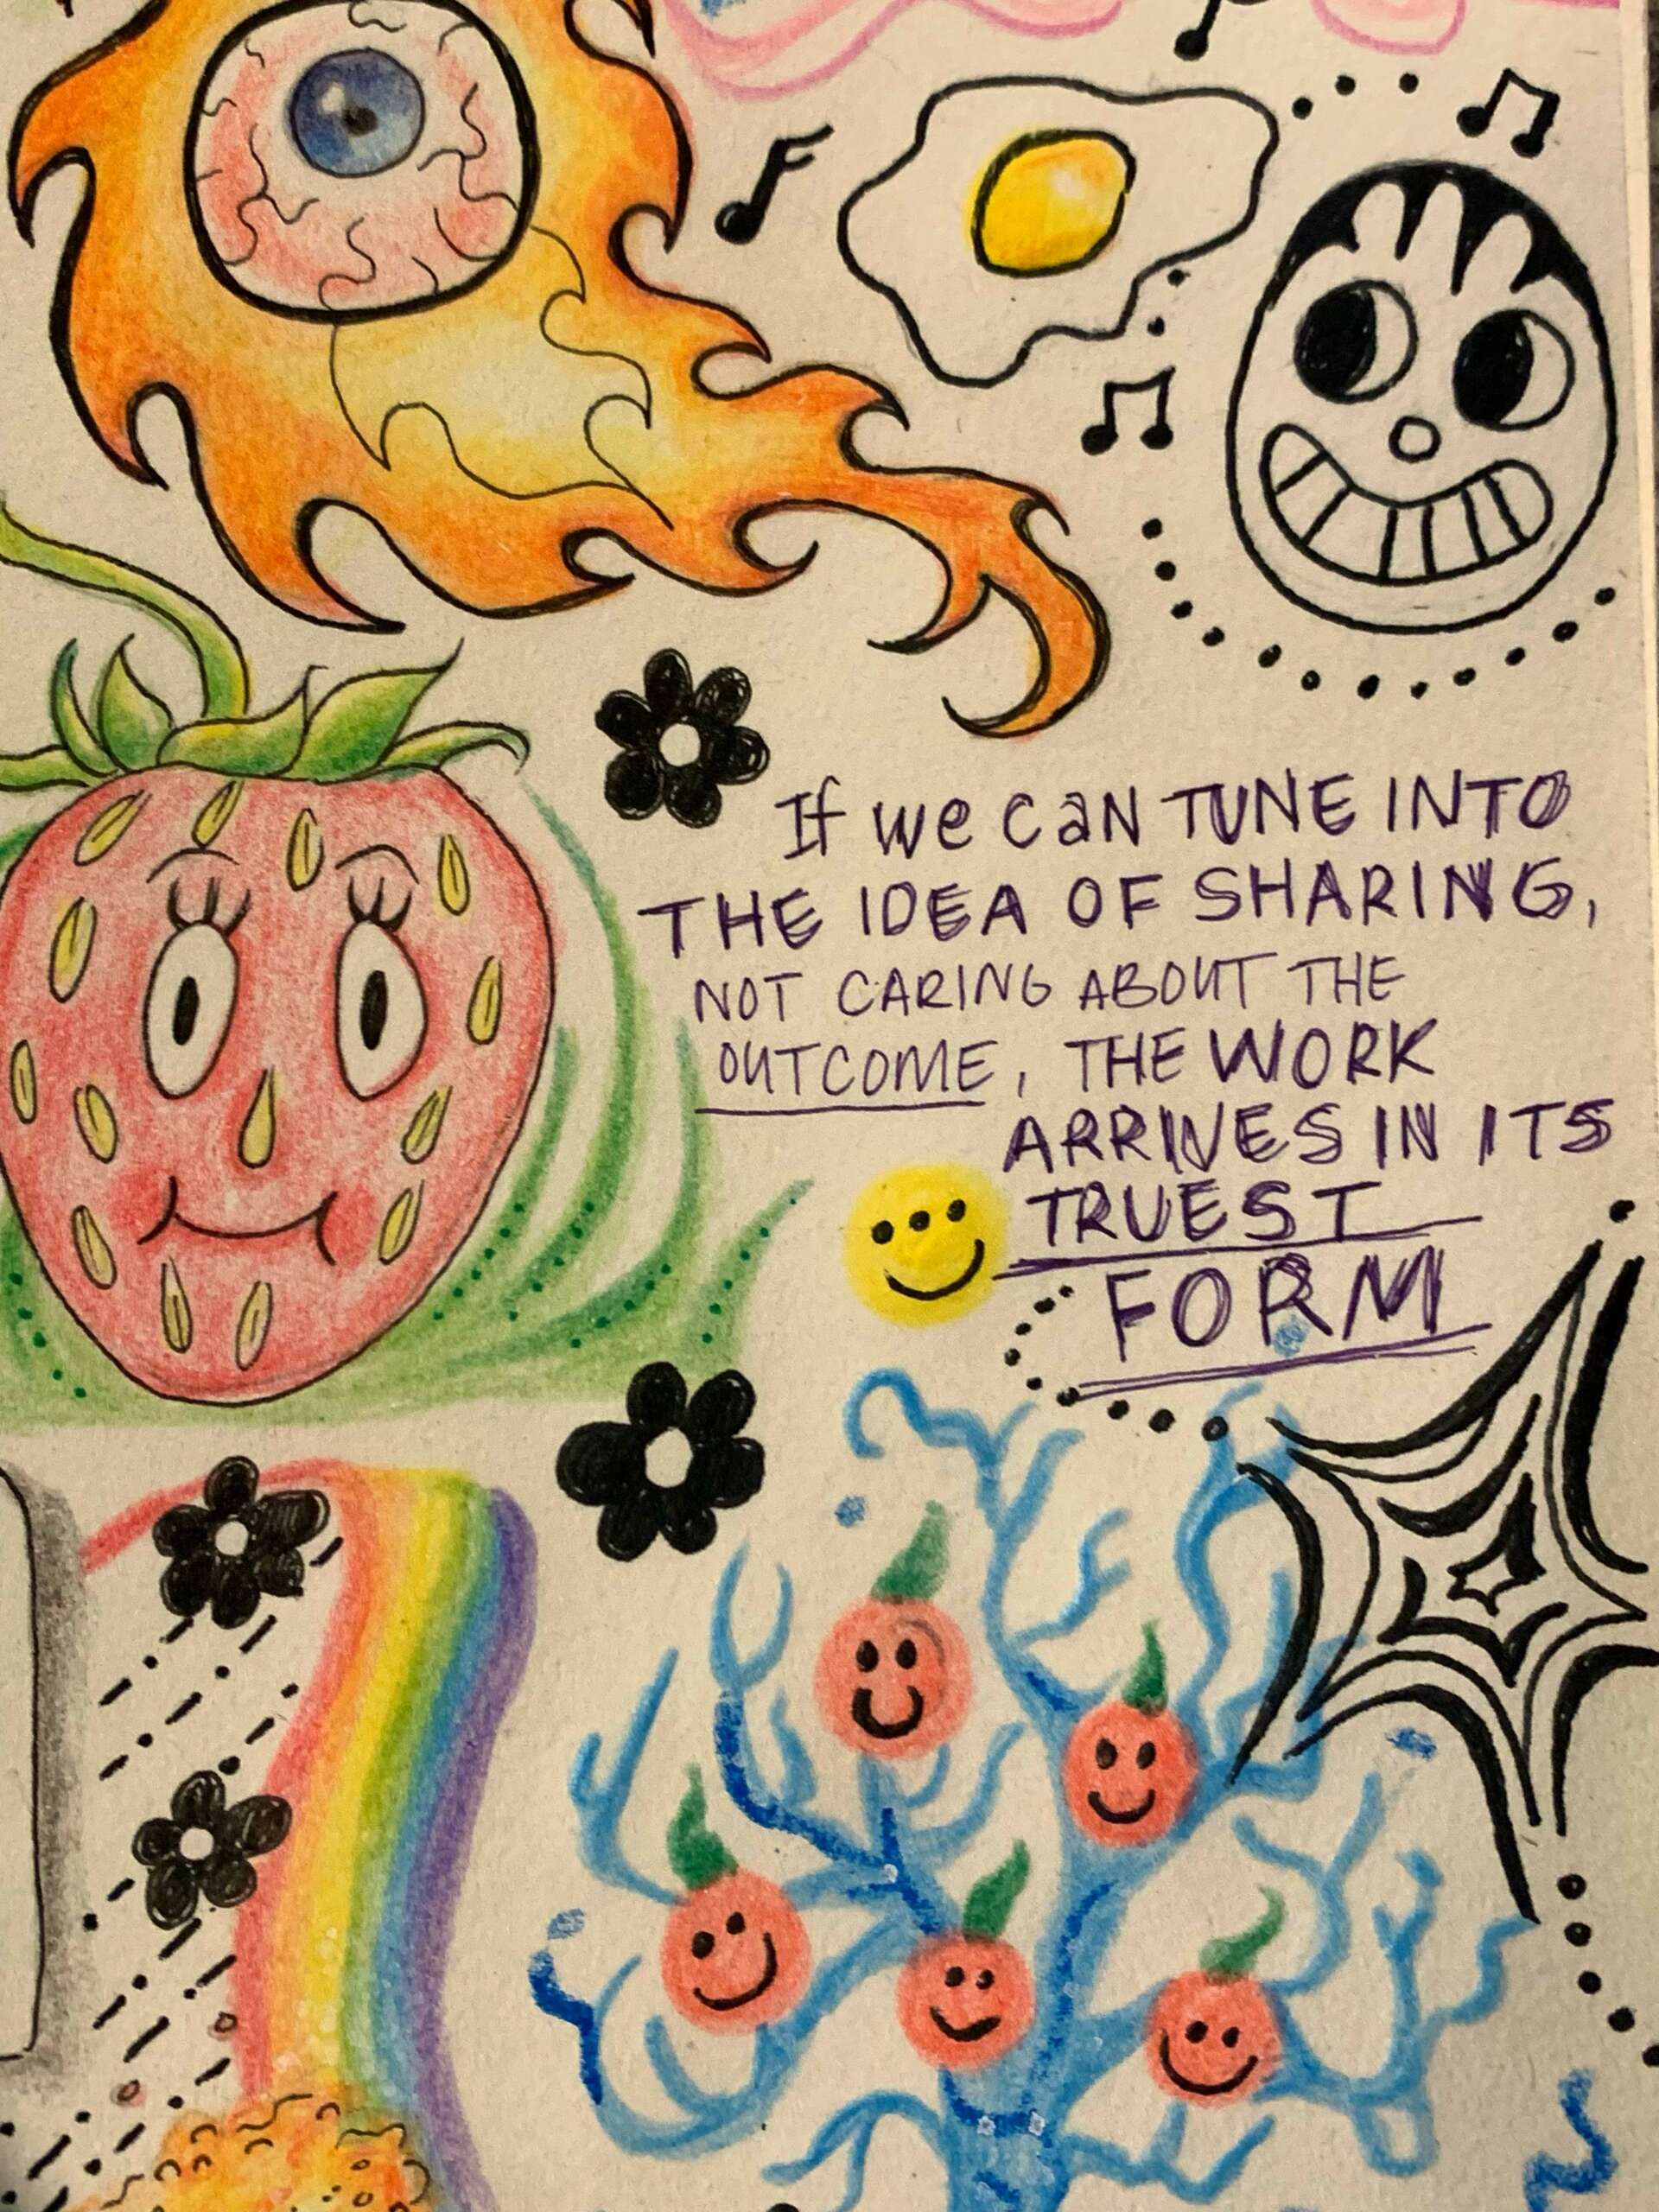 If we can TUNE INTO
THE IDEA OF SHARING,
NOT CARING ABOUT THE
OUTCOME, THE WORK
ARRIVES IN ITS
TRUEST
FORM